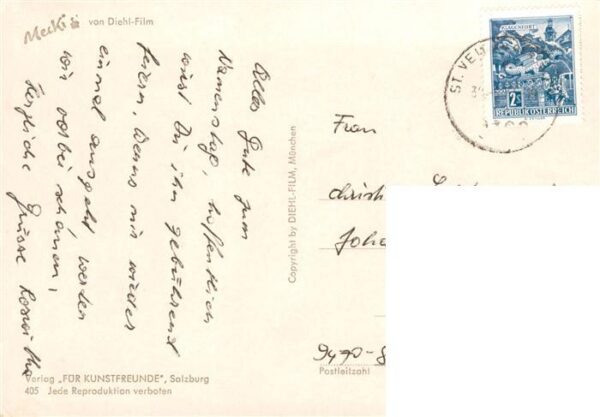 Mecki von Diehl-Film
Alles Gute zum
Namenstag, hoffentlich
wirst Du ihn gebührend
feiern. Wenns mir wieder
einmal ausgeht werden
wir vorbei schauen.
Herzliche Grüsse Roswitha
Copyright by DIEHL-FILM, München
Verlag „FÜR KUNSTFREUNDE", Salzburg
405 Jede Reproduktion verboten
KLAGENFURT
2S
REPUBLIK ÖSTERREICH
ST. VEIT
Frau
Christ
Joha
9490-
Postleitzahl